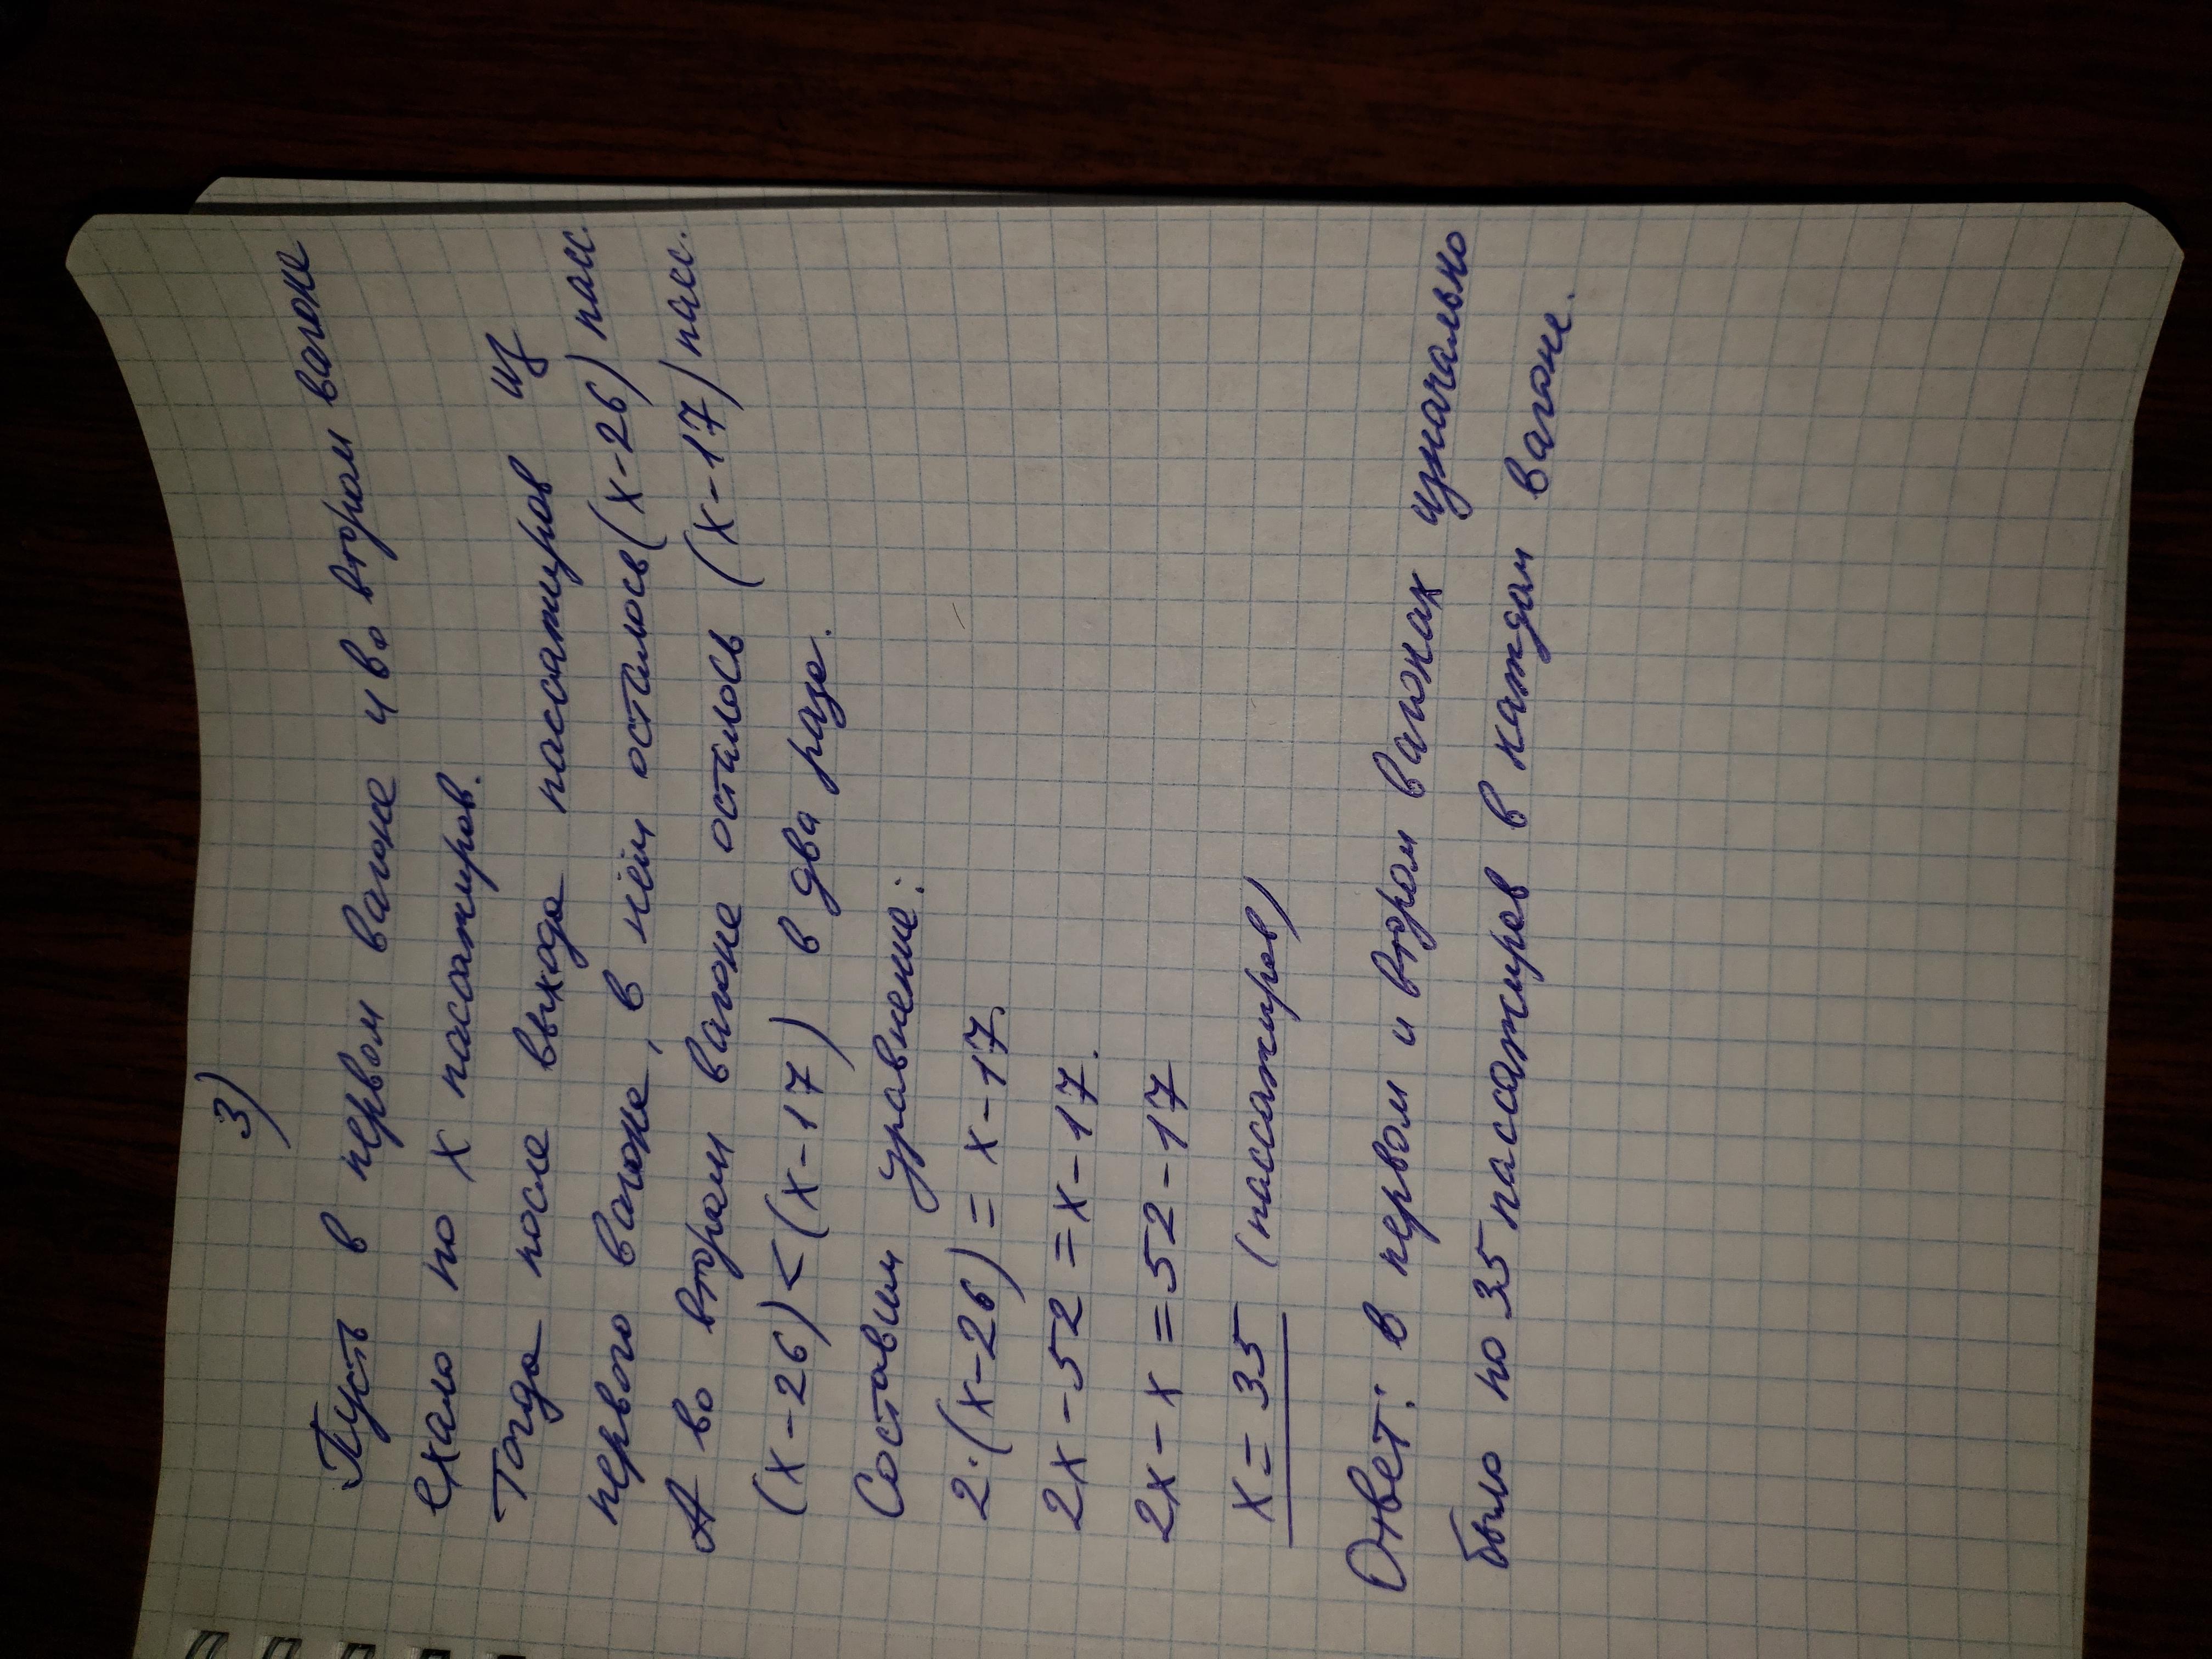 3)
Пусть в первом вагоне и во втором вагоне
ехало по х пассажиров.
Тогда после выхода пассажиров из
первого вагона, в нём осталось (х-26) пасс.
А во втором вагоне осталось (х-17) пасс.
(х-26)<(х-17) в два раза.
Составим уравнение:
2·(х-26)=х-17.
2х-52=х-17.
2х-х=52-17
х=35 (пассажиров)
Ответ: в первом и втором вагонах изначально
было по 35 пассажиров в каждом вагоне.